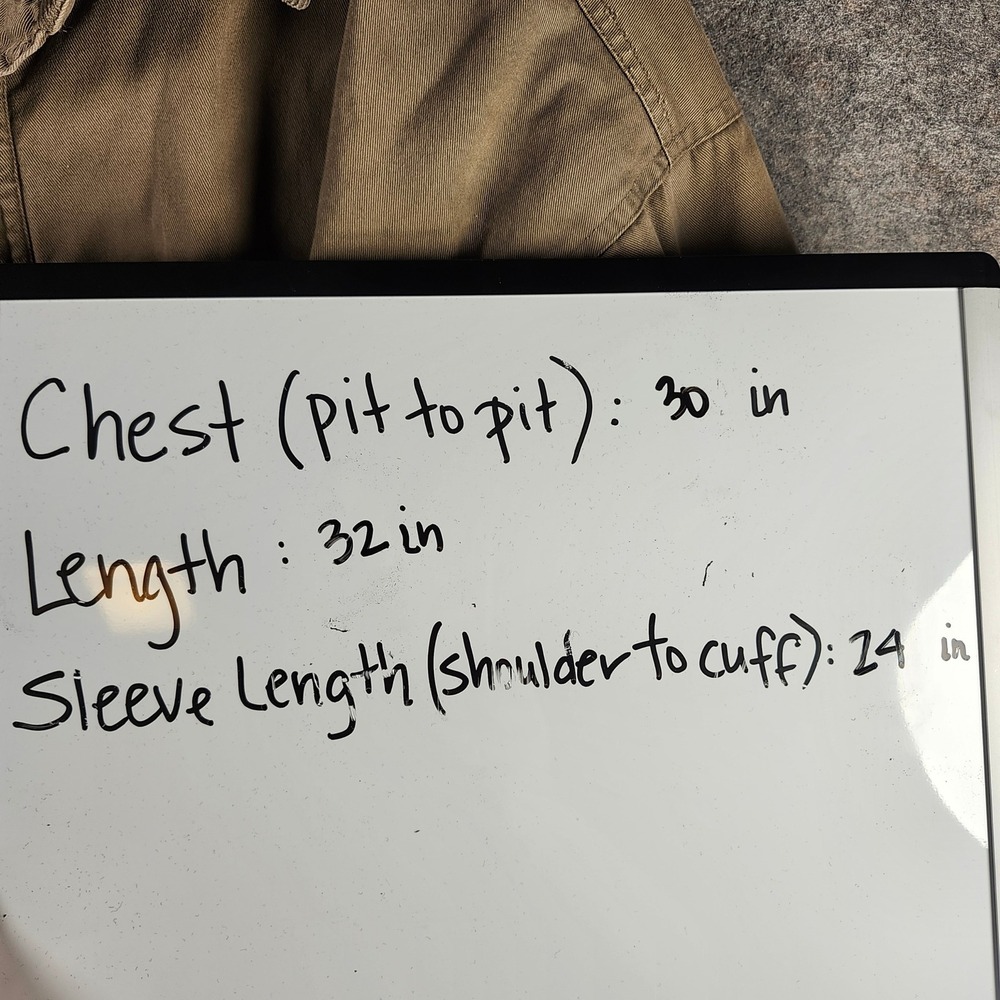 Chest (pit to pit): 30 in
Length : 32 in
Sleeve Length (shoulder to cuff): 24 in